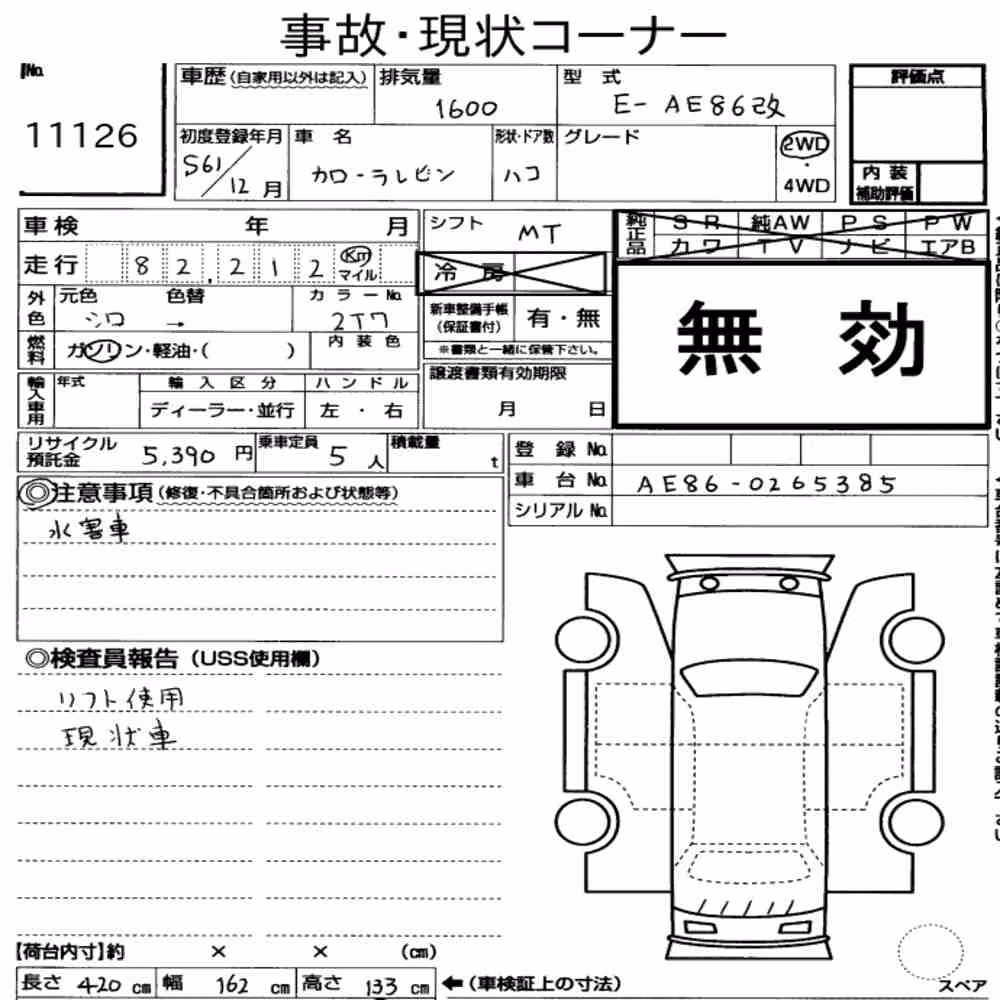 事故・現状コーナー
No.
11126
車歴(自家用以外は記入)
排気量
1600
型 式
E- AE86改
評価点
初度登録年月
S61/12月
車 名
カローラレビン
形状・ドア数
ハコ
グレード
2WD
・
4WD
内 装
補助評価
車検 年 月
走行 82,212 Km マイル
シフト MT
純正品
SR 純AW PS PW
カワ TV ナビ エアB
冷 房
無 効
外色
元色 色替 カラーNo.
シロ → 2T7
新車整備手帳
(保証書付)
有・無
※書類と一緒に保管下さい。
燃料
ガソリン・軽油・( )
内装色
輸入車用
年式 輸入区分 ハンドル
ディーラー・並行 左・右
譲渡書類有効期限
月 日
リサイクル
預託金
5,390円
乗車定員
5人
積載量
t
登 録 No.
車 台 No. AE86-0265385
シリアル No.
◎注意事項(修復・不具合箇所および状態等)
水害車
◎検査員報告(USS使用欄)
リフト使用
現状車
【荷台内寸】約 × × (cm)
長さ 420 cm 幅 162 cm 高さ 133 cm ←(車検証上の寸法)
スペア